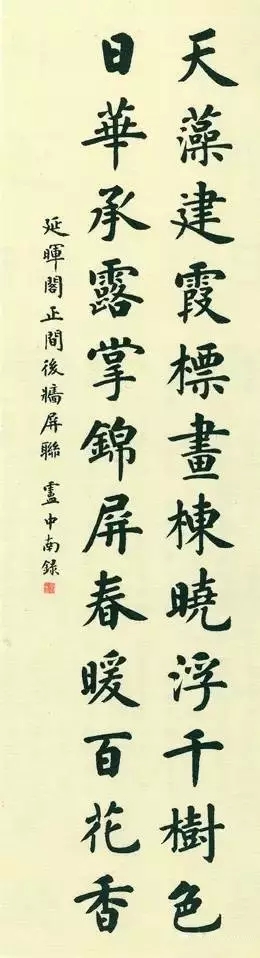 天藻建霞標畫棟曉浮千樹色
日華承露掌錦屏春暖百花香
延暉閣正間後牆屏聯 盧中南錄